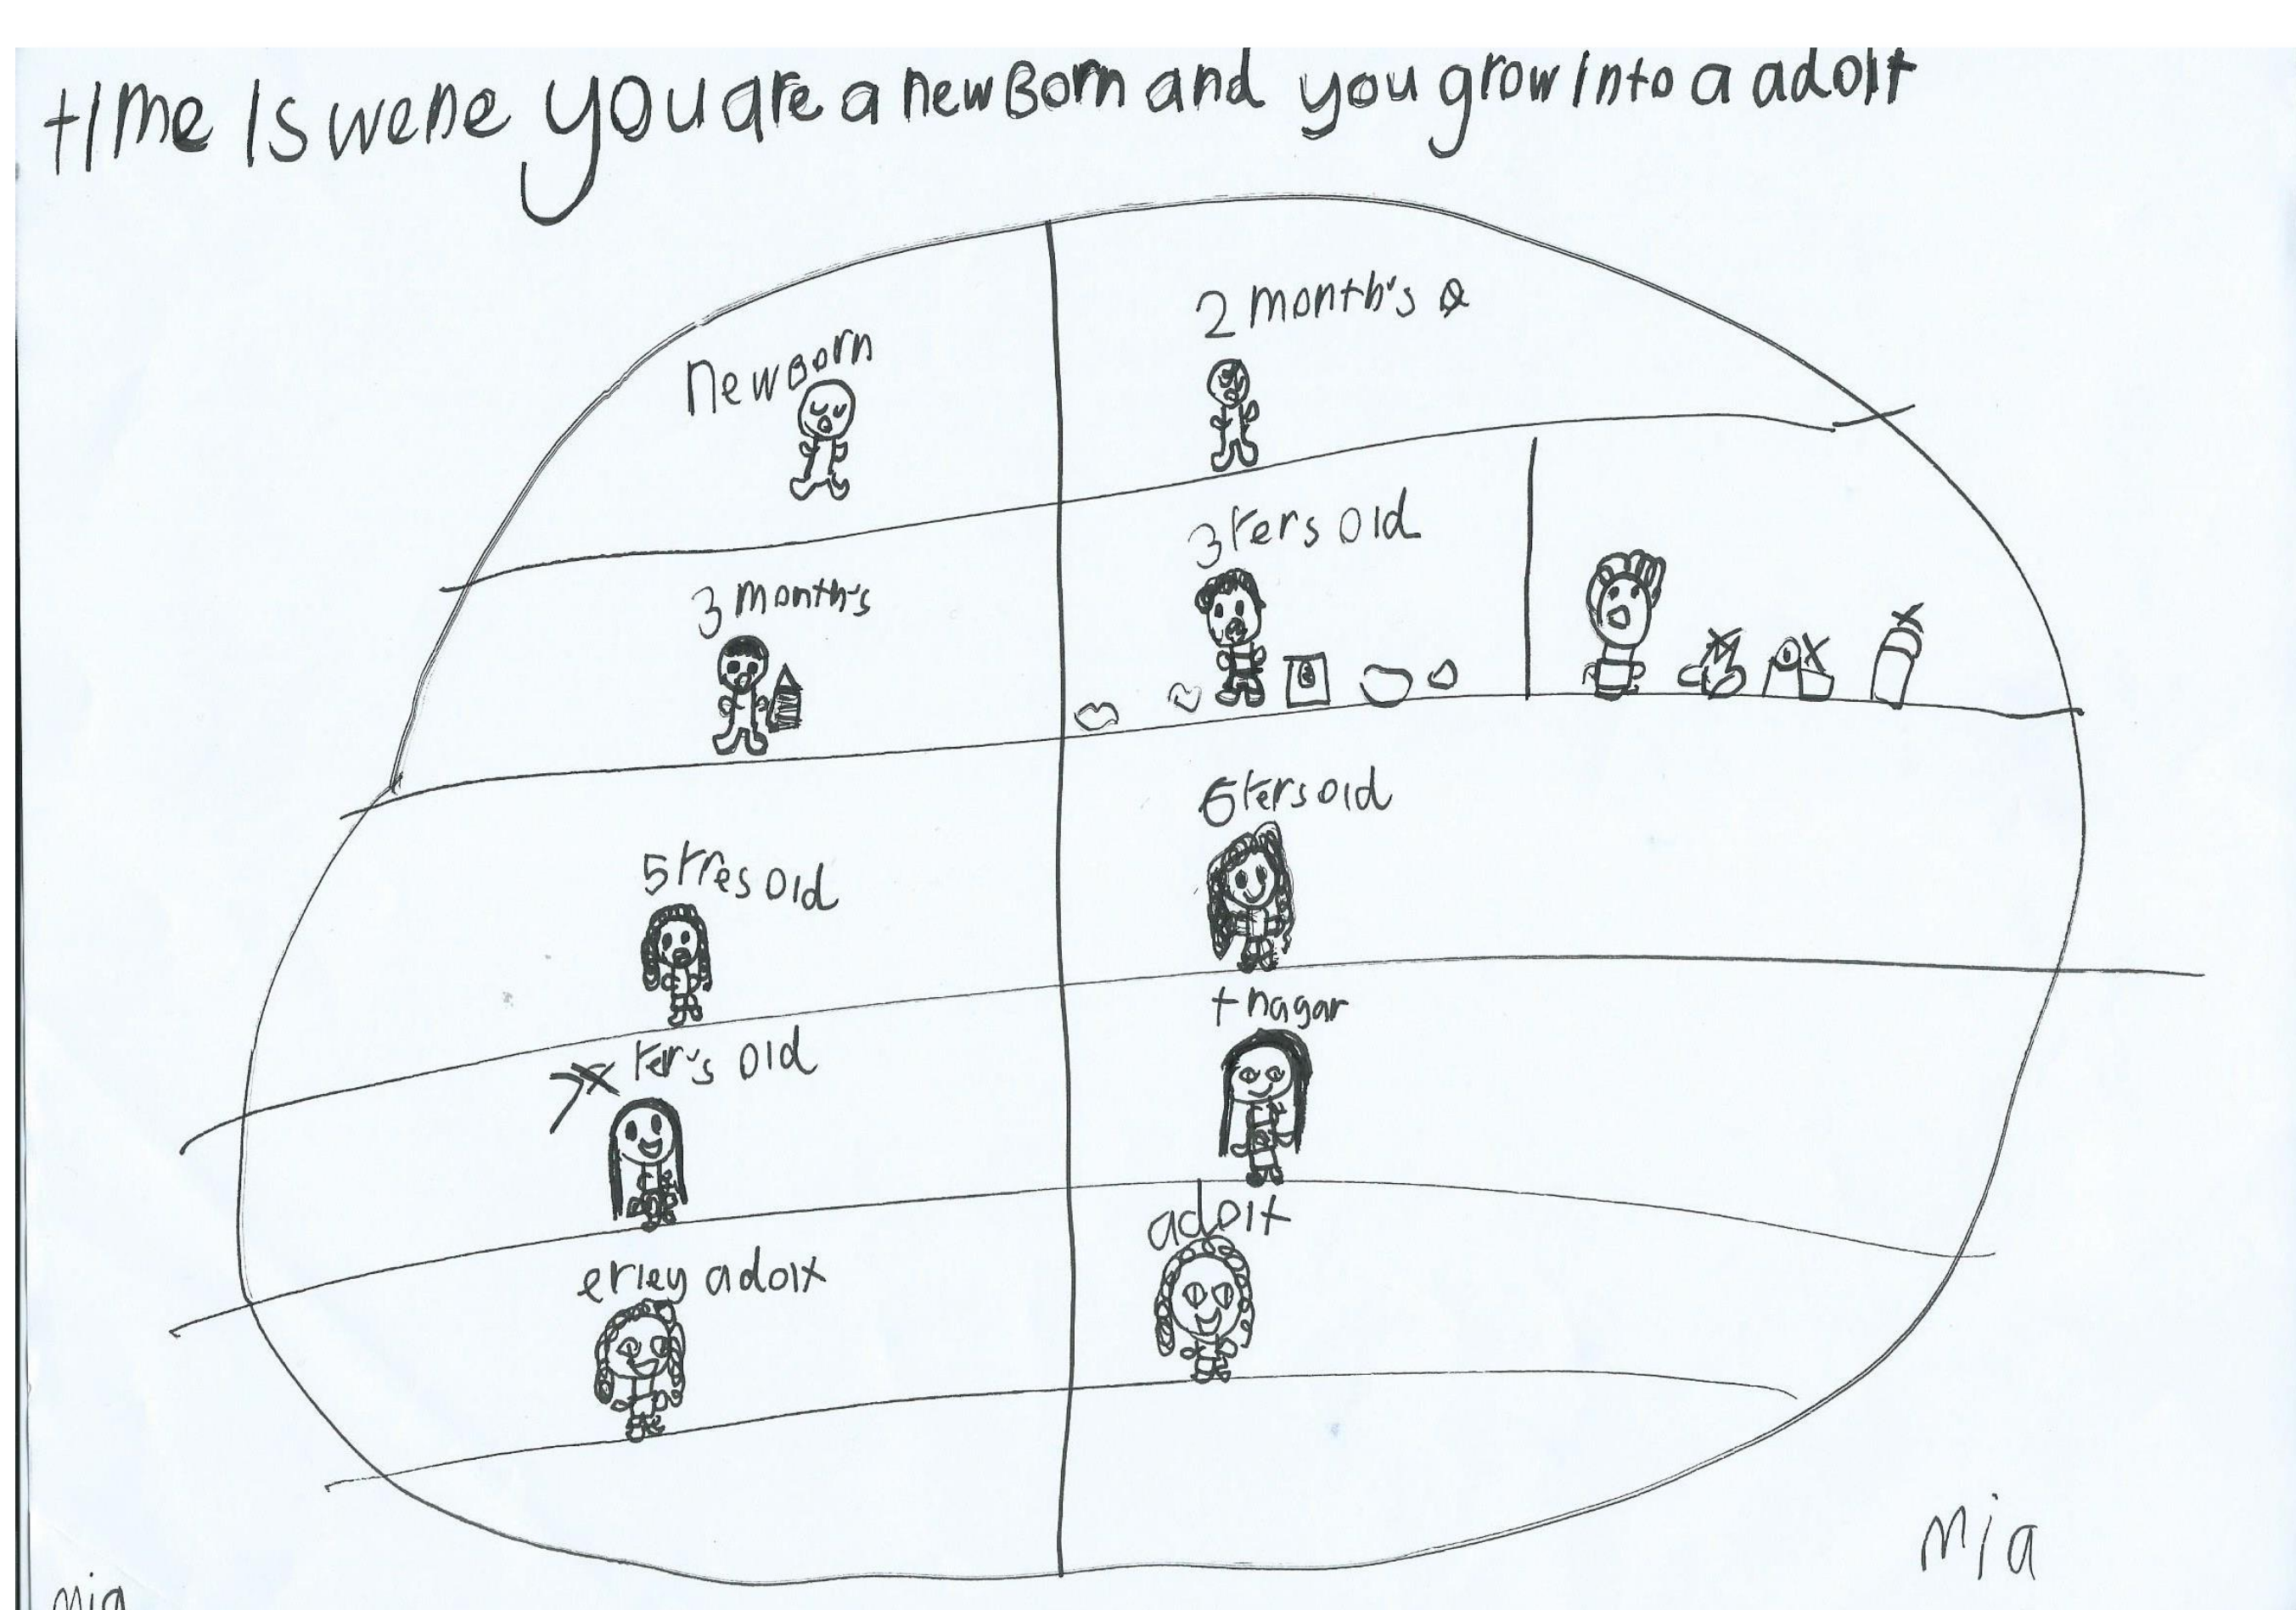 time is wene you are a newBorn and you grow into a adolt
newBorn
2 month's
3 month's
3 Yers old
5 Yres old
6 Yers old
7 Yer's old
tnagar
erley adolt
adolt
mia
mia